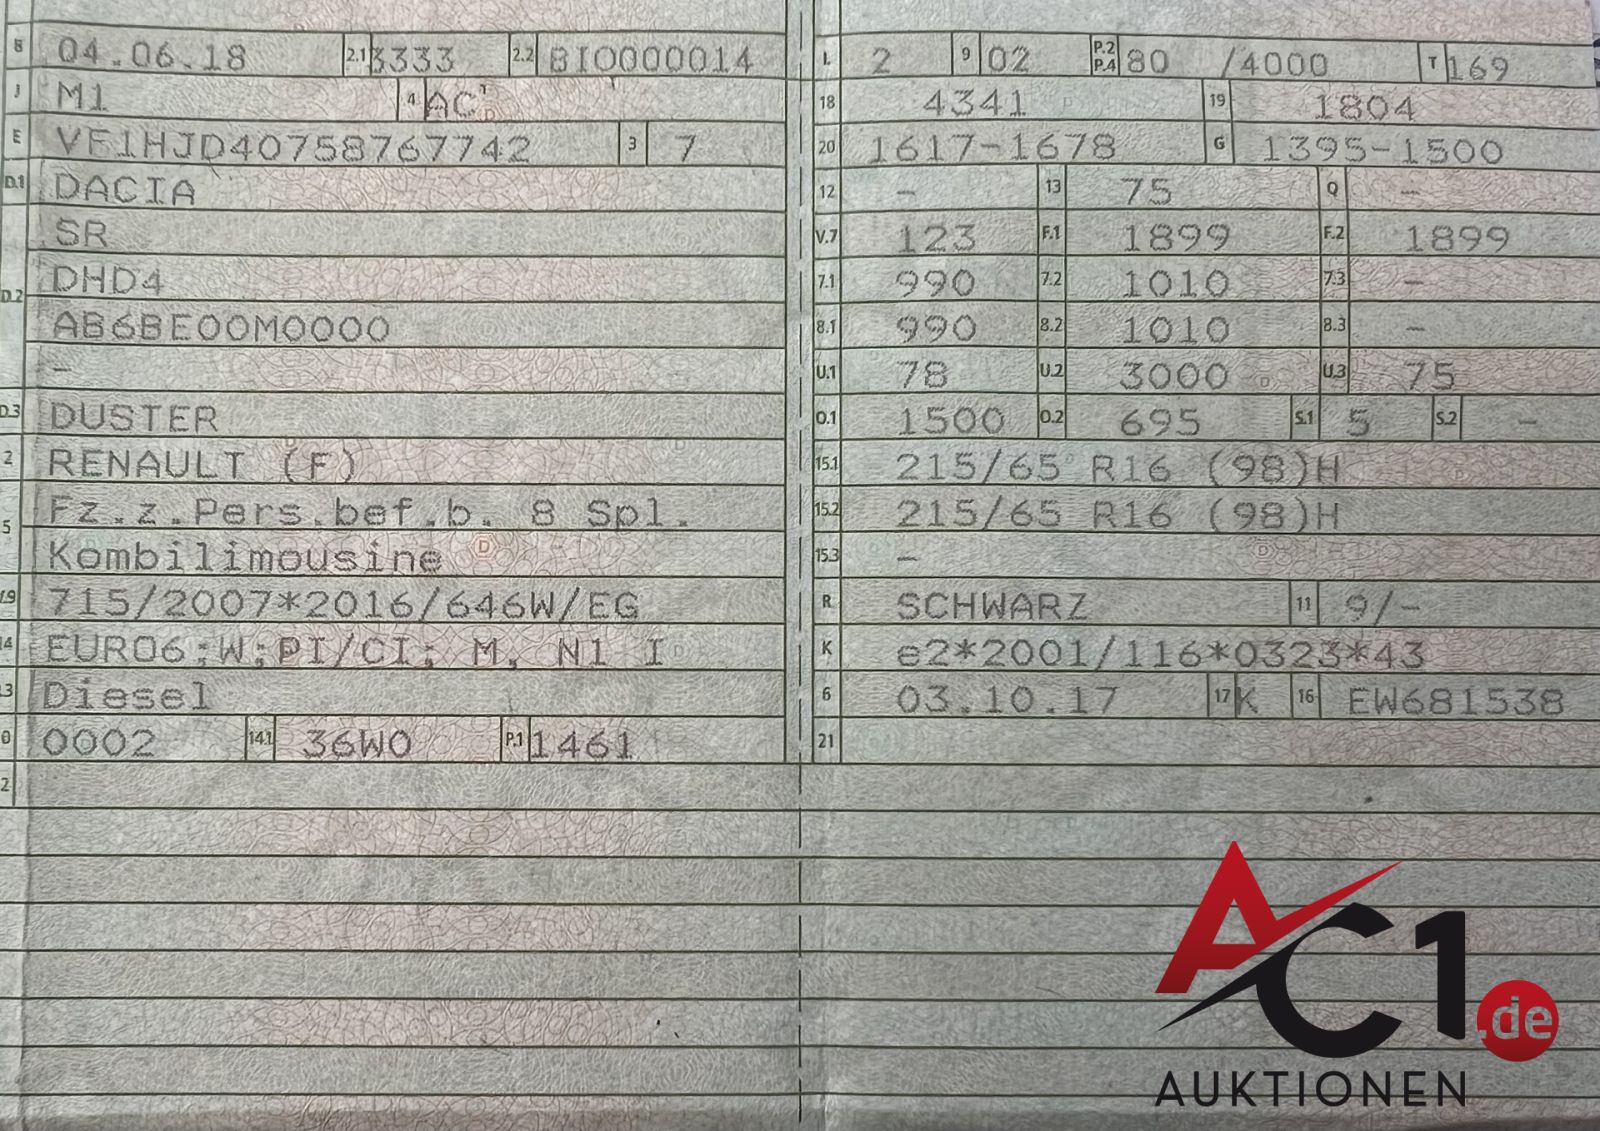 B 04.06.18 2.1 3333 2.2 BIO000014
J M1 4 AC
E VF1HJD40758767742 3 7
D.1 DACIA
SR
DHD4
D.2
AB6BE00M0000
–
D.3 DUSTER
2 RENAULT (F)
Fz.z.Pers.bef.b. 8 Spl.
5
Kombilimousine
V.9 715/2007*2016/646W/EG
14 EURO6;W;PI/CI; M, N1 I
P.3 Diesel
10 0002 14.1 36W0 P.1 1461
22
L 2 9 02 P.2 P.4 80 /4000 T 169
18 4341 19 1804
20 1617-1678 G 1395-1500
12 – 13 75 Q –
V.7 123 F.1 1899 F.2 1899
7.1 990 7.2 1010 7.3 –
8.1 990 8.2 1010 8.3 –
U.1 78 U.2 3000 U.3 75
O.1 1500 O.2 695 S.1 5 S.2 –
15.1 215/65 R16 (98)H
15.2 215/65 R16 (98)H
15.3 –
R SCHWARZ 11 9/-
K e2*2001/116*0323*43
6 03.10.17 17 K 16 EW681538
21
AC1.de
AUKTIONEN